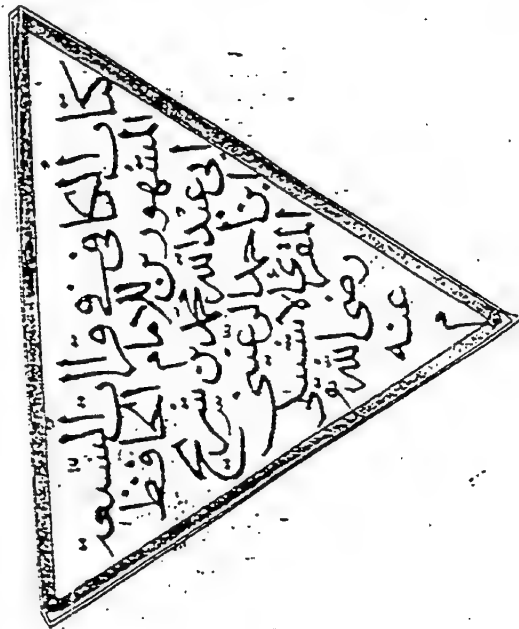 كتاب الكافى فى قراات السبعة
المشهورين للامام الحافظ
ابى عبد الله محمد بن شريح
ابن احمد الرعينى
المقرى الاشبيلى
رضى الله
عنه
م